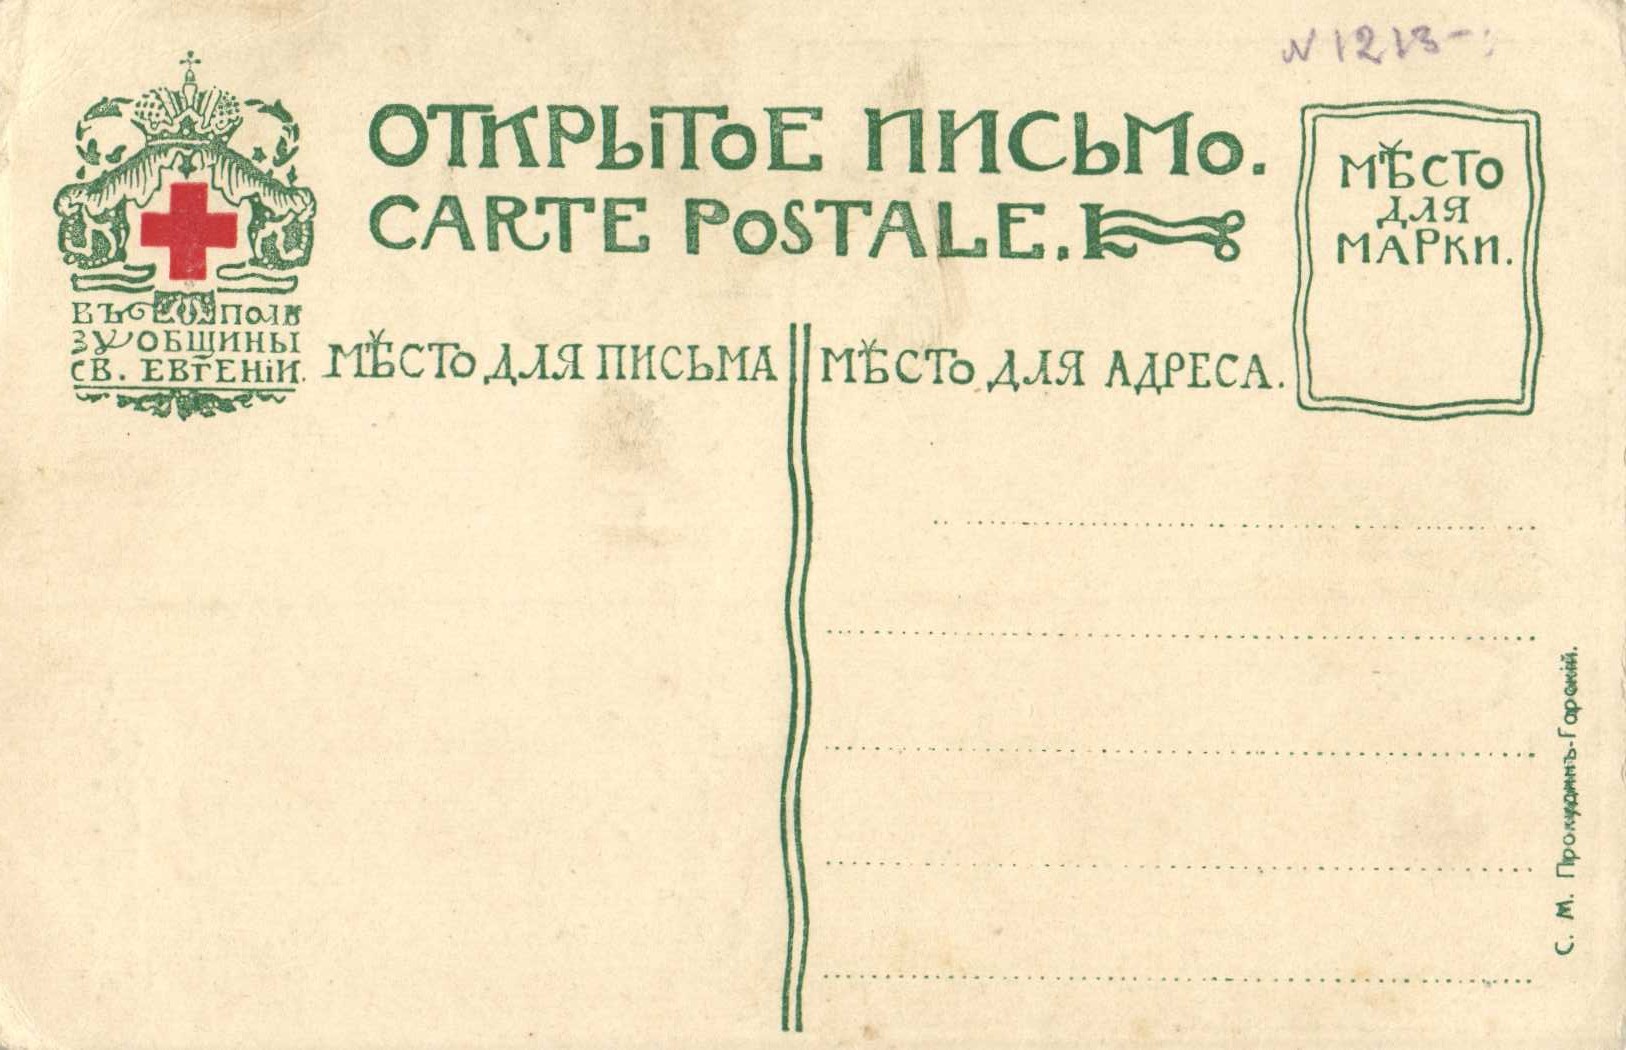 N 1213-
ОТКРЫТОЕ ПИСЬМО.
CARTE POSTALE.
МѢСТО
ДЛЯ
МАРКИ.
ВЪ ПОЛЬ
ЗУ ОБЩИНЫ
СВ. ЕВГЕНІИ.
МѢСТО ДЛЯ ПИСЬМА
МѢСТО ДЛЯ АДРЕСА.
С. М. Прокудинъ-Горскій.